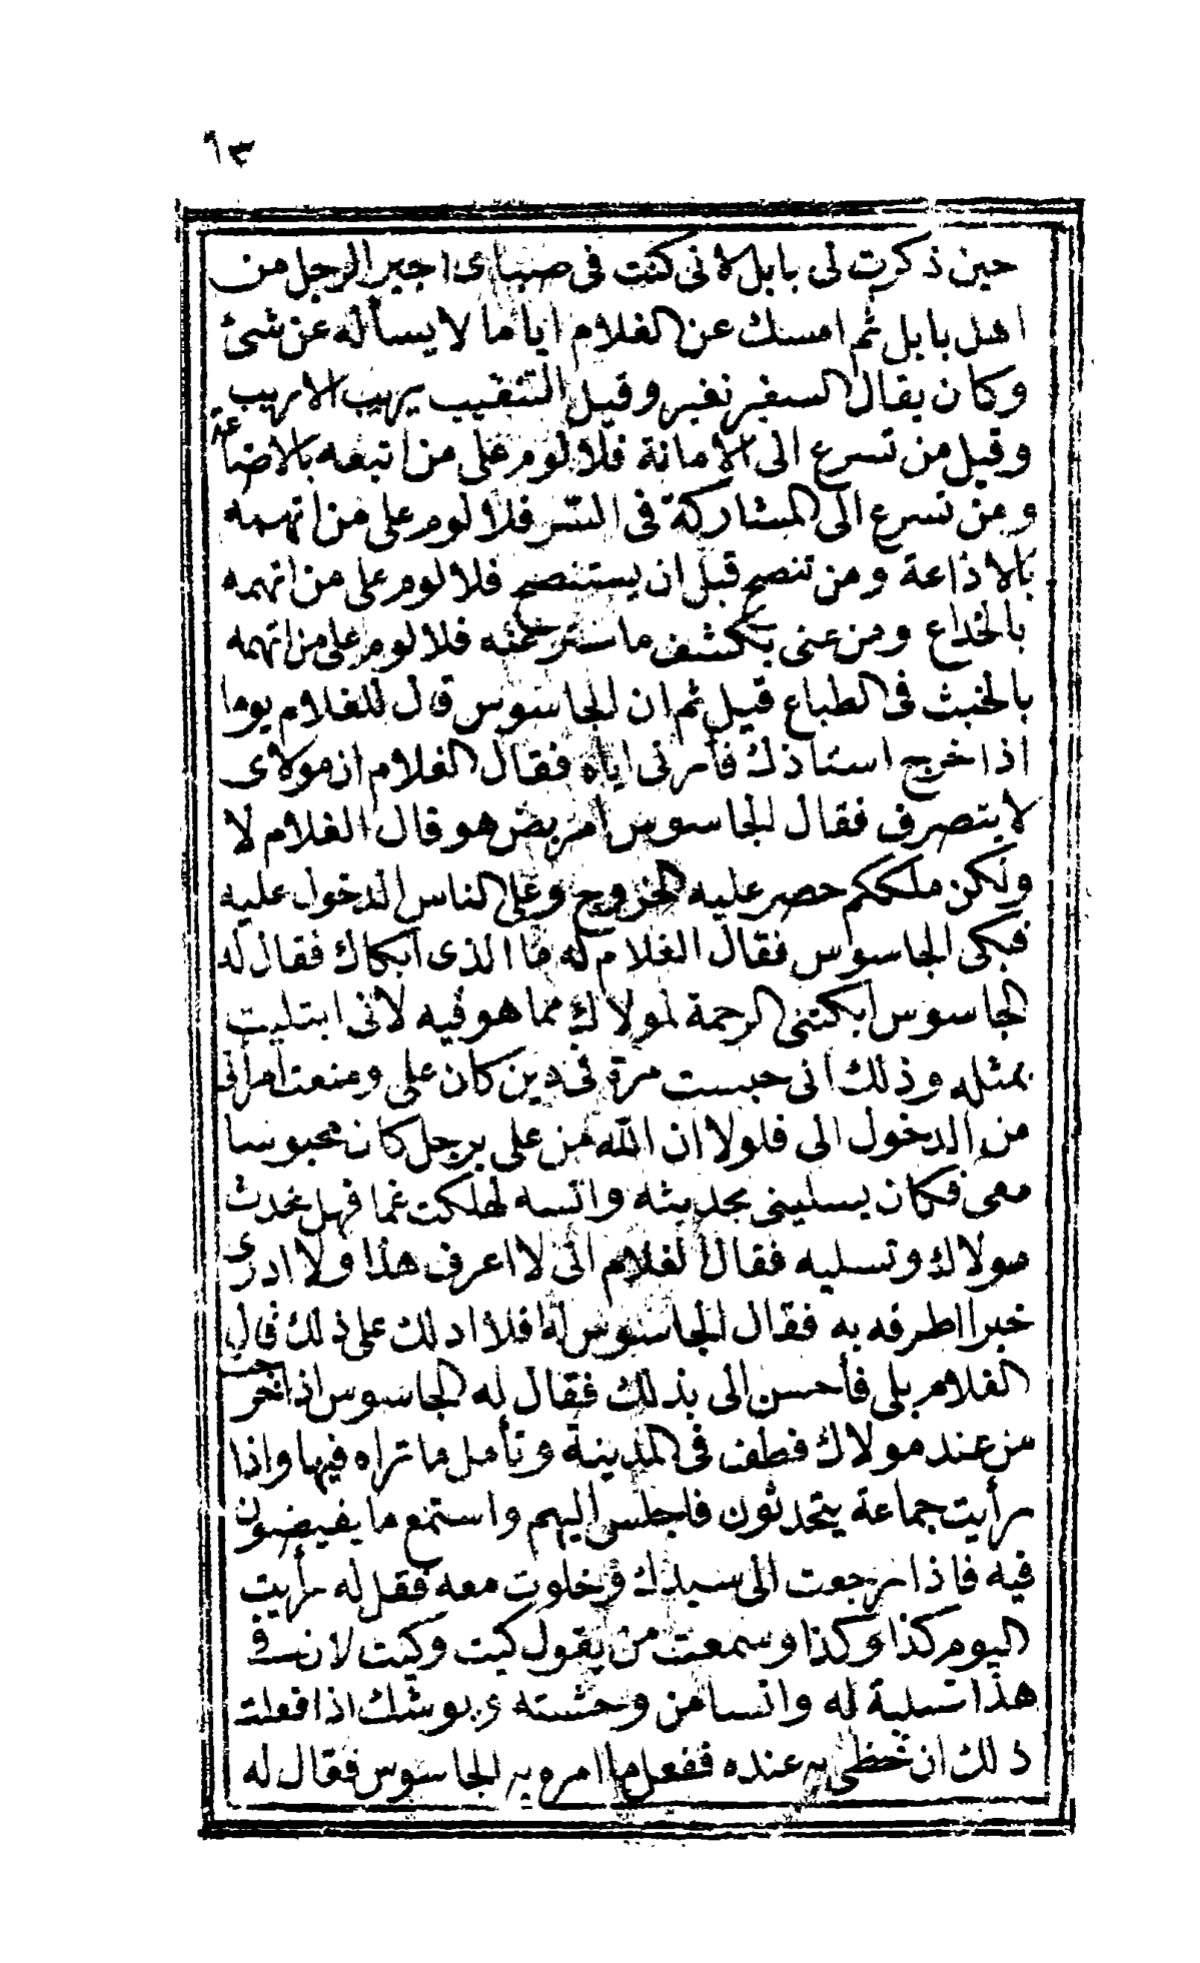 ٩٣
حين ذكرت لى بابل لانى كنت فى صباى اجير الرجل من
اهل بابل ثم امسك عن الغلام اياما لا يسأله عن شئ
وكان يقال السفير نفير وقيل التنقيب يهيب الاريب
وقيل من تسرع الى الامانة فلا لوم على من اتبعه بالاضاعة
ومن تسرع الى المشاركة فى السّر فلا لوم على من اتهمه
بالاذاعة ومن تنصح قبل ان يستنصح فلا لوم على من اتهمه
بالخداع ومن عنى بكشف ما ستر عنه فلا لوم على من اتهمه
بالخبث فى الطباع قيل ثم ان الجاسوس قال للغلام يوما
اذا خرج استاذك فأرنى اياه فقال الغلام ان مولاى
لا يتصرف فقال الجاسوس امريض هو قال الغلام لا
ولكن ملككم حصر عليه الخروج وعلى الناس الدخول عليه
فبكى الجاسوس فقال الغلام له ما الذى ابكاك فقال له
الجاسوس ابكتنى الرحمة لمولاك مما هو فيه لانى ابتليت
بمثله وذلك انى حبست مرة فى دين كان على ومنعت امرأتى
من الدخول الى فلولا ان الله من على برجل كان محبوسا
معى فكان يسلينى بحديثه وانسه لهلكت غما فهل تحدث
مولاك وتسليه فقال الغلام انى لا اعرف هذا ولا ادرى
خبرا اطرفه به فقال الجاسوس له افلا ادلك على ذلك قال
الغلام بلى فأحسن الى بذلك فقال له الجاسوس اذا خرجت
من عند مولاك فطف فى المدينة وتأمل ما تراه فيها واذا
رأيت جماعة يتحدثون فاجلس اليهم واستمع ما يفيضون
فيه فاذا رجعت الى سيدك وخلوت معه فقل له رأيت
اليوم كذا وكذا وسمعت من يقول كيت وكيت لان فى
هذا تسلية له وانسا من وحشته ويوشك اذا فعلت
ذلك ان تحظى به عنده ففعل ما امره به الجاسوس فقال له